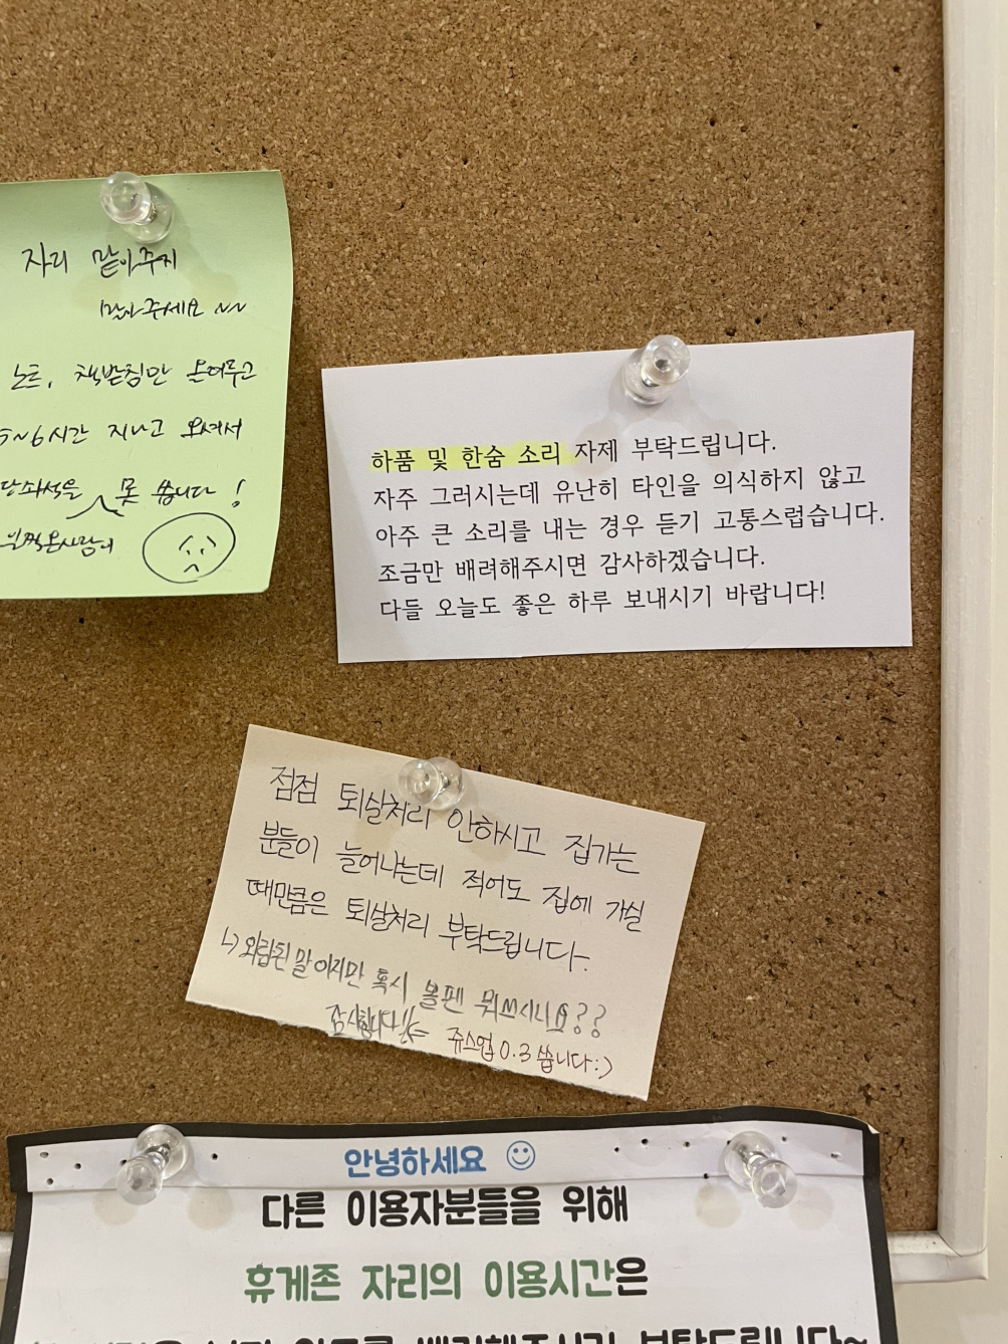 자리 맡아주지
말아주세요 ~~
노트, 책받침만 올려두고
5~6시간 지나고 오셔서
못 씁니다!
하품 및 한숨 소리 자제 부탁드립니다.
자주 그러시는데 유난히 타인을 의식하지 않고
아주 큰 소리를 내는 경우 듣기 고통스럽습니다.
조금만 배려해주시면 감사하겠습니다.
다들 오늘도 좋은 하루 보내시기 바랍니다!
점점 퇴실처리 안하시고 집가는
분들이 늘어나는데 적어도 집에 가실
때만큼은 퇴실처리 부탁드립니다.
↳ 외람된 말이지만 혹시 볼펜 뭐쓰시나요??
감사합니다!! ⇐ 쥬스업 0.3 씁니다:)
안녕하세요 ☺
다른 이용자분들을 위해
휴게존 자리의 이용시간은